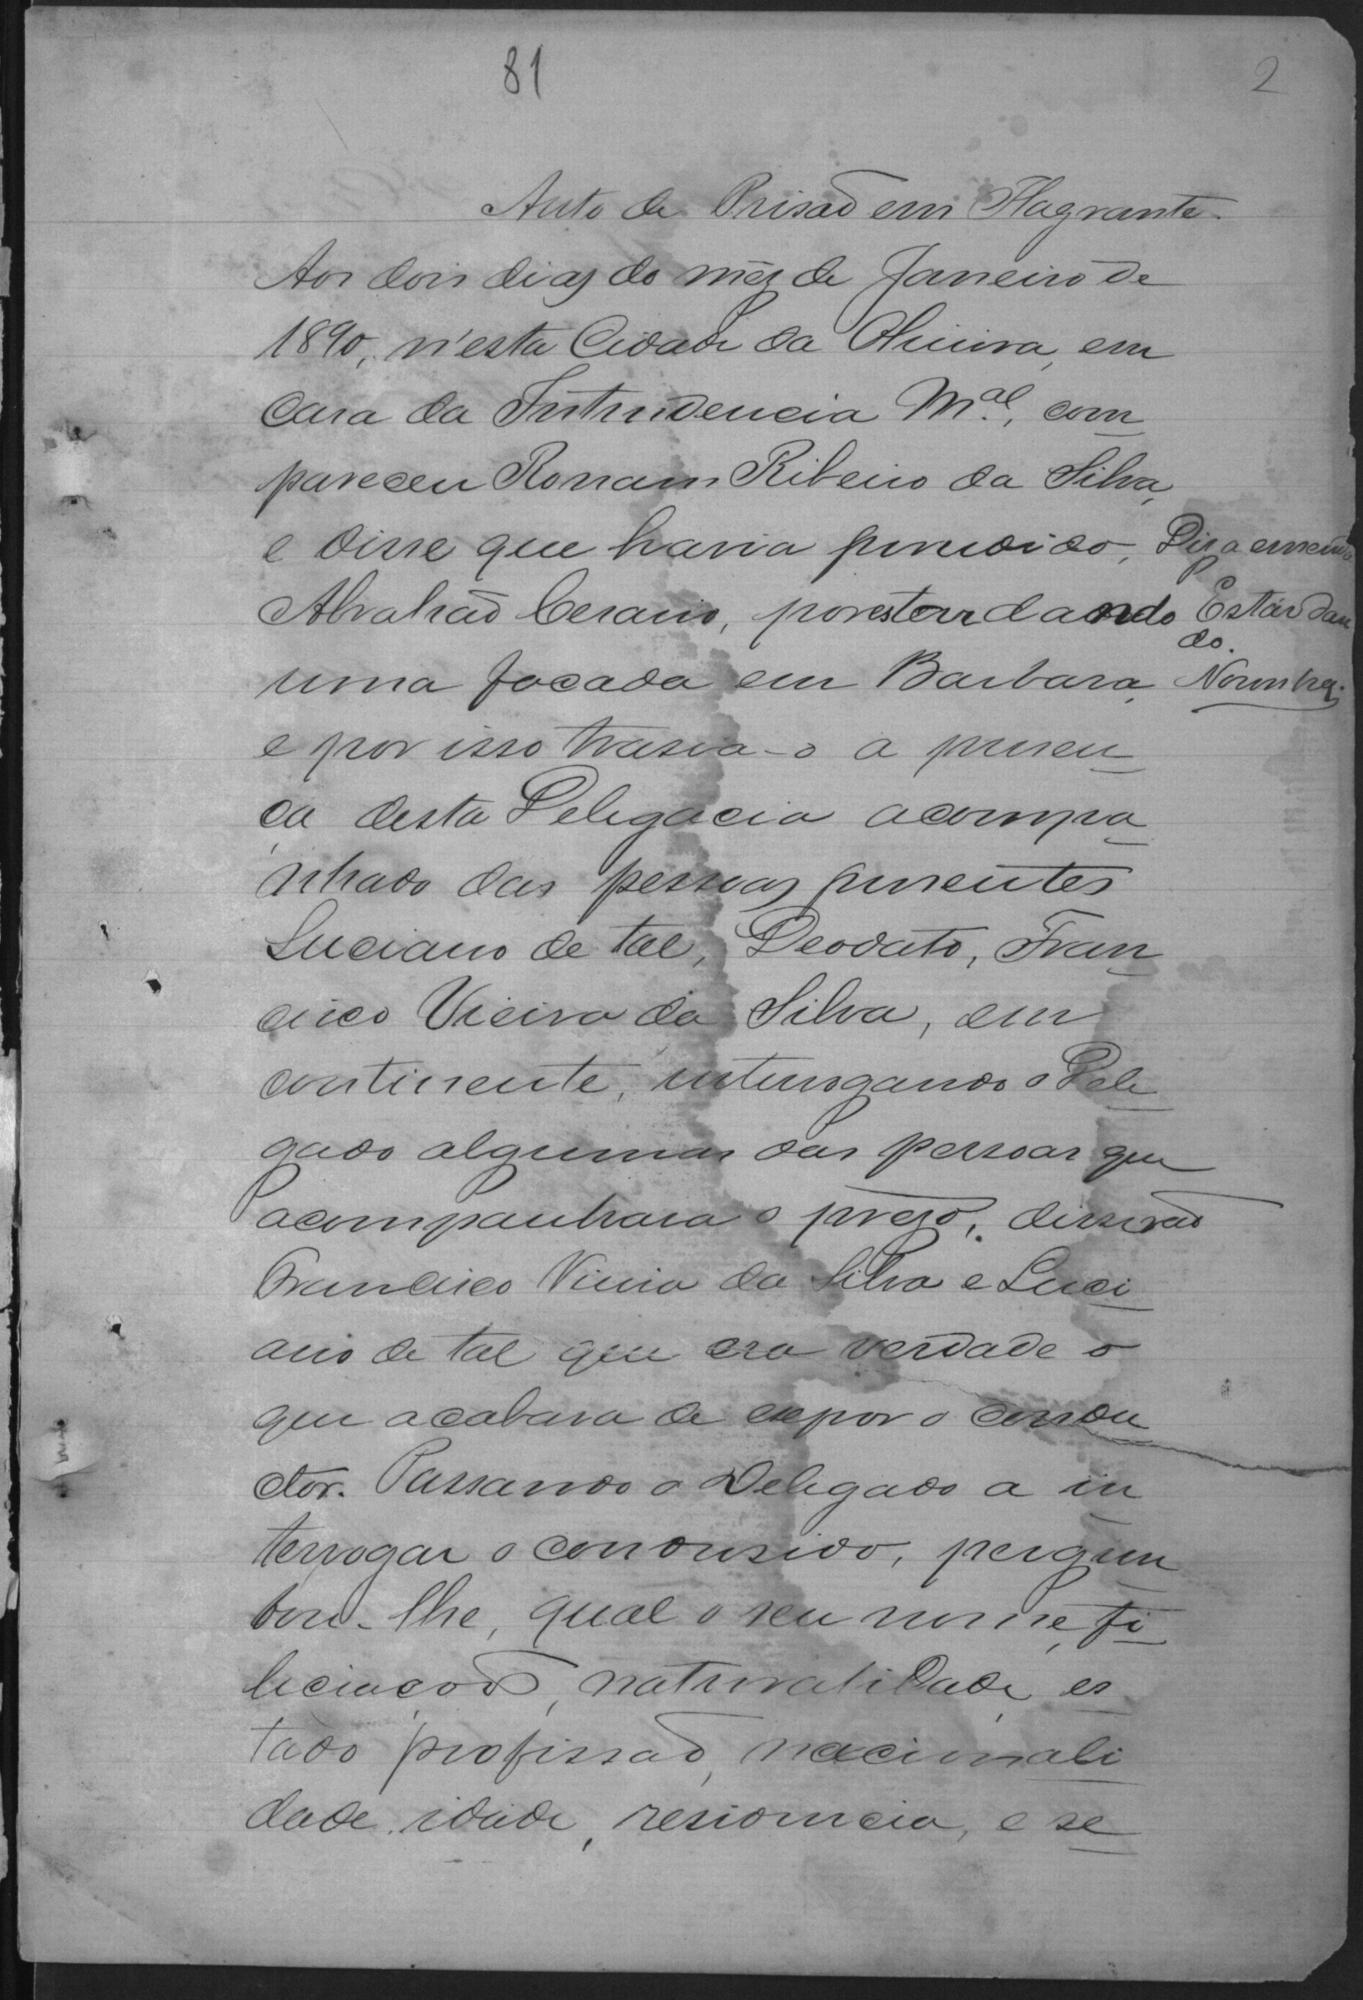 81
2
Auto de Prisaõ em Flagrante.
Aos dois dias do mêz de Janeiro de
1890, n'esta Cidade da Oliveira, em
Casa da Intendencia M.al, com
pareceu Ronam Ribeiro da Silva,
e disse que havia prendido,
Abrahaõ Cesario, por estar dando
uma facada em Barbara,
e por isso trasia-o a presen
ça desta Delegacia acompa
nhado das pessoas presentes
Luciano de tal, Deodato, Fran
cisco Vieira da Silva, em
continente, interrogando o Dele
gado algumas das pessoas que
acompanhara o prezo, disseraõ
Francisco Vieira da Silva e Luci
ano de tal que era verdade o
que acabara de expor o condu
ctor. Passando o Delegado a in
terrogar o condusido, pergun
tou-lhe, qual o seu nome, fi
liciaçaõ, naturalidade, es
tado profissaõ, nacionali
dade, idade, residencia, e se
Diz a emenda
Estár dan
do.